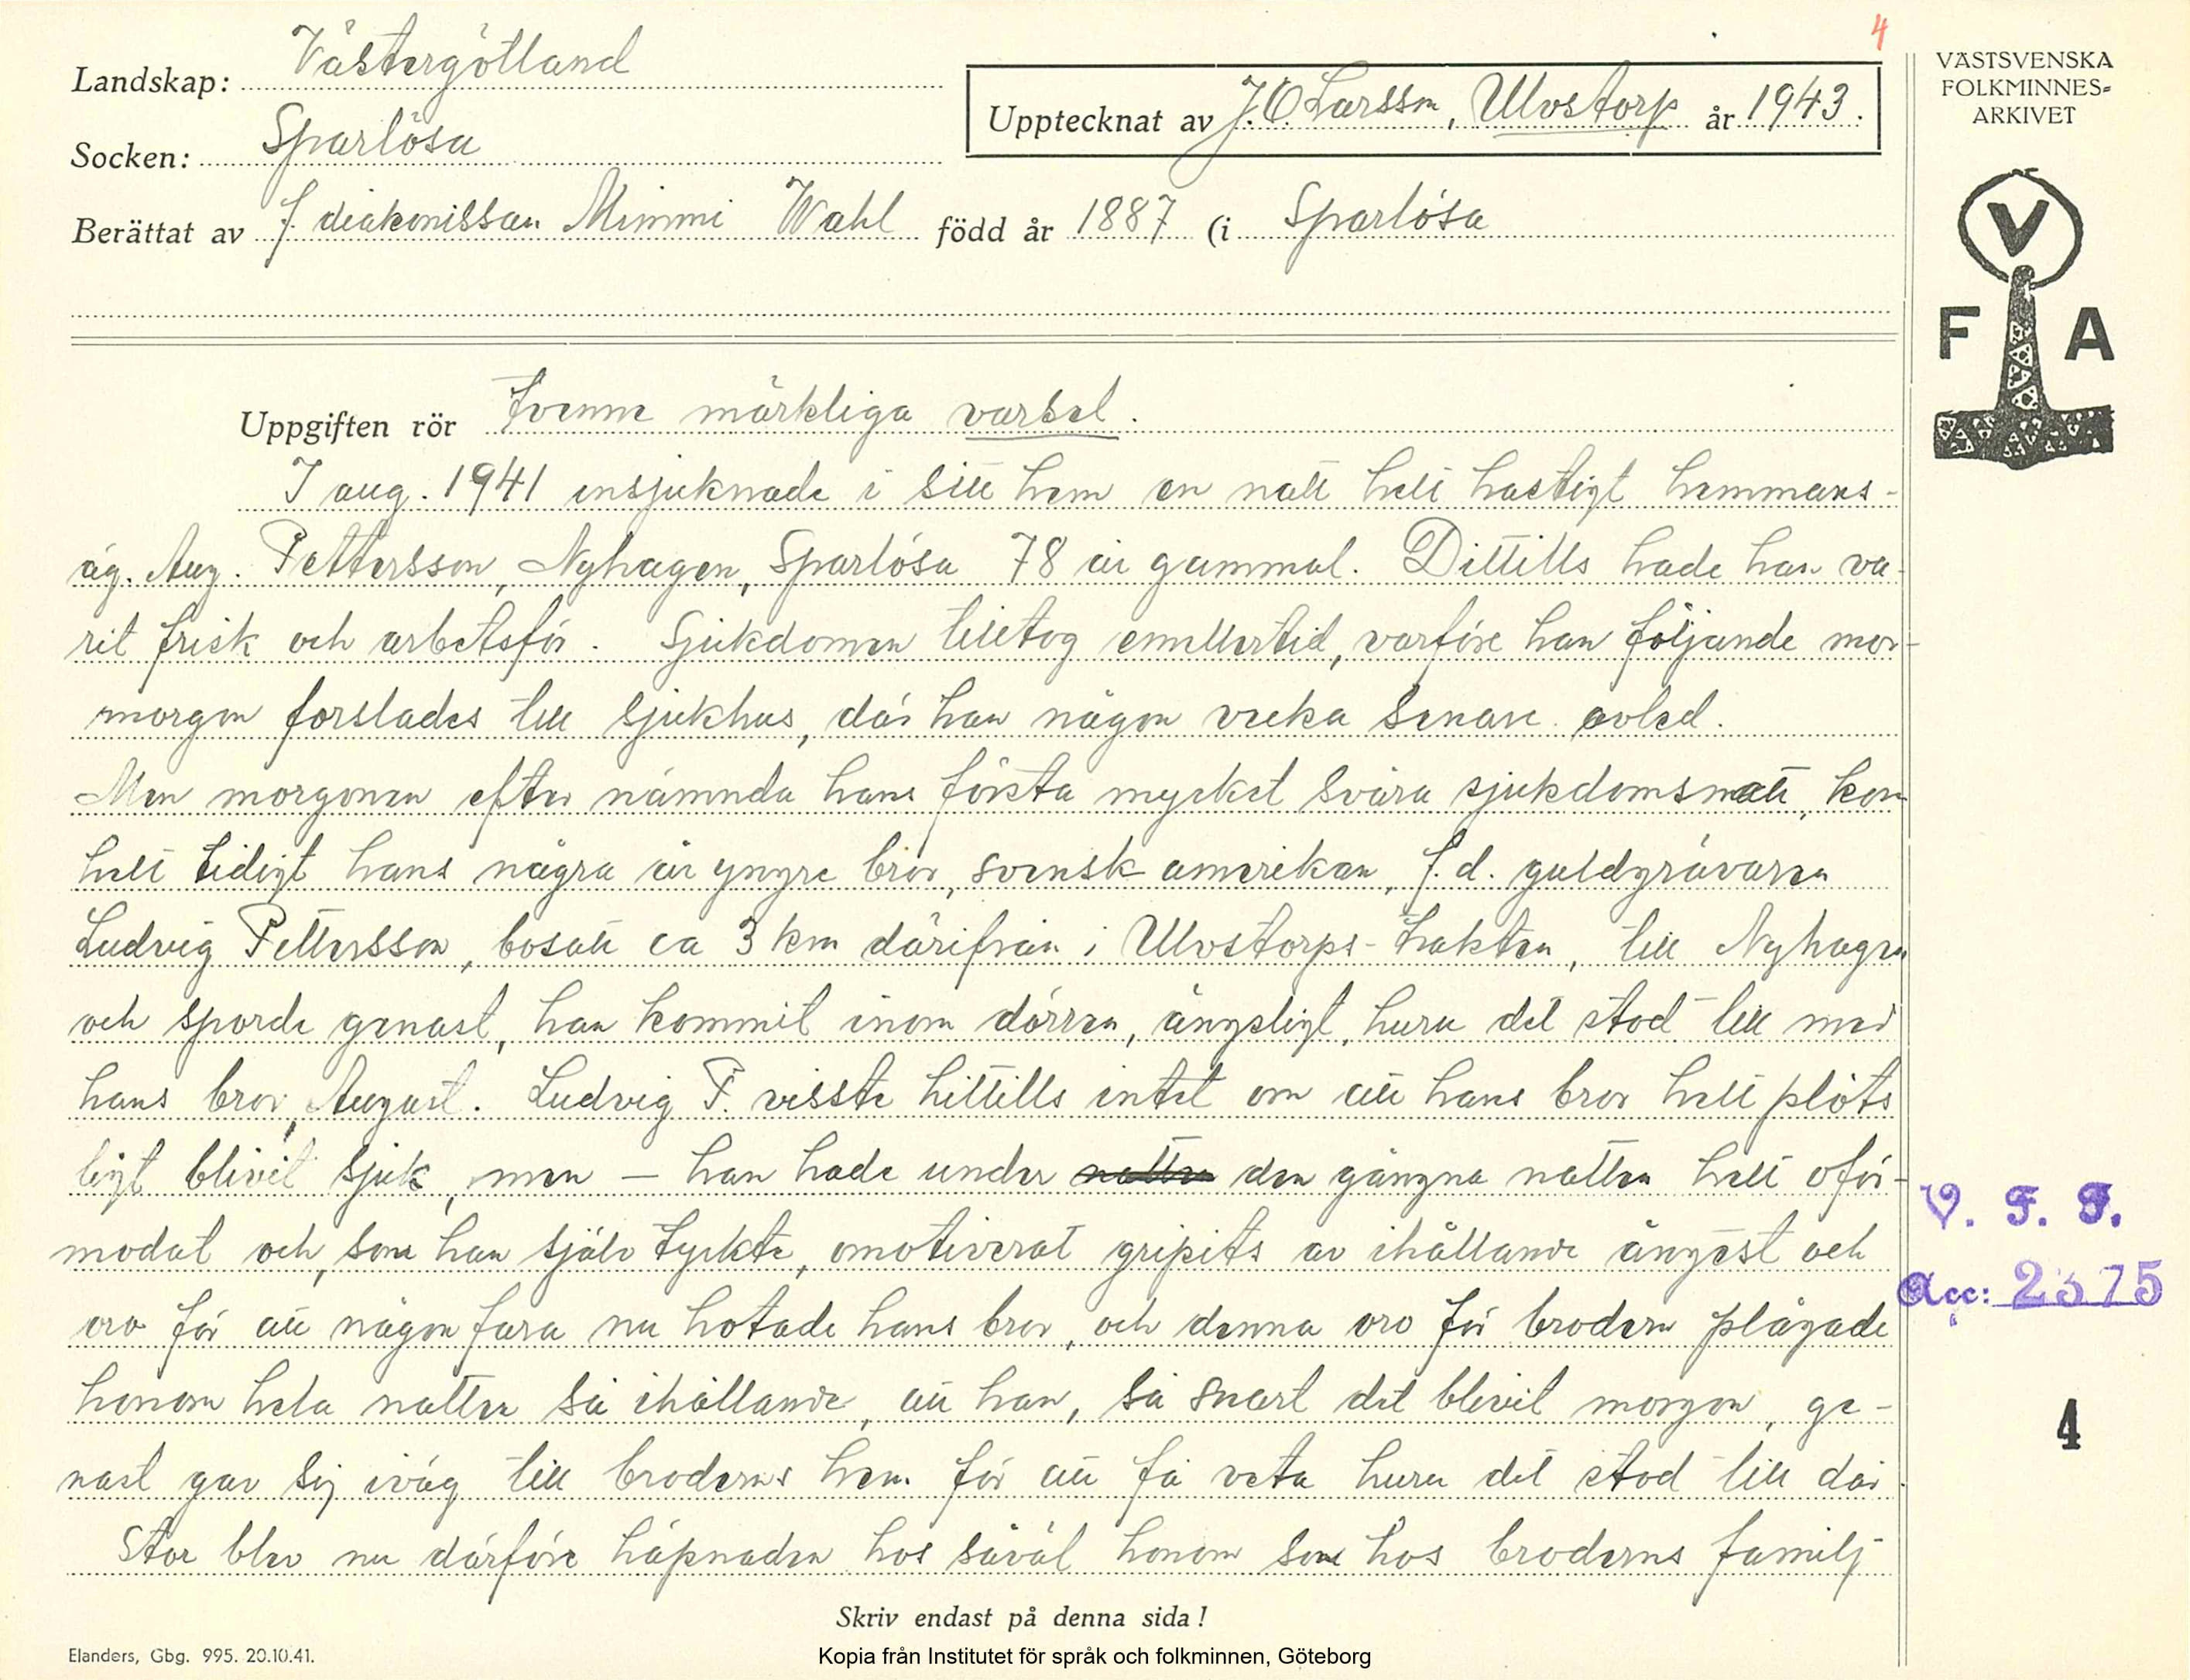 4
Landskap: Västergötland
Socken: Sparlösa
Upptecknat av J.O Larsson, Ulvstorp år 1943.
Berättat av f. diakonissan Mimmi Wahl född år 1887 (i Sparlösa
VÄSTSVENSKA
FOLKMINNES-
ARKIVET
V
F A
Uppgiften rör Tvenne märkliga varsel.
I aug. 1941 insjuknade i sitt hem en natt helt hastigt hemmans-
äg. Aug. Pettersson, Nyhagen, Sparlösa 78 år gammal. Dittills hade han va-
rit frisk och arbetsför. Sjukdomen tilltog emellertid, varföre han följande mor-
morgon forslades till sjukhus, där han någon vecka senare avled.
Men morgonen efter nämnda hans första mycket svåra sjukdomsnatt, kom
helt tidigt hans några år yngre bror, svensk-amerikan, f.d. guldgrävaren
Ludvig Pettersson, bosatt ca 3 km därifrån i Ulvstorps-trakten, till Nyhagen
och sporde genast, han kommit inom dörren, ängsligt, huru det stod till med
hans bror, August. Ludvig P. visste hittills intet om att hans bror helt plöts
ligt blivit sjuk, men — han hade under natten den gångna natten helt oför-
modat och, som han själv tyckte, omotiverat gripits av ihållande ångest och
oro för att någon fara nu hotade hans bror, och denna oro för brodern plågade
honom hela natten så ihållande, att han, så snart det blivit morgon, ge-
nast gav sig iväg till broderns hem för att få veta huru det stod till där.
Stor blev nu därföre häpnaden hos såväl honom som hos broderns familj
V. F. F.
Acc: 2375
4
Skriv endast på denna sida!
Elanders, Gbg. 995. 20.10.41.
Kopia från Institutet för språk och folkminnen, Göteborg